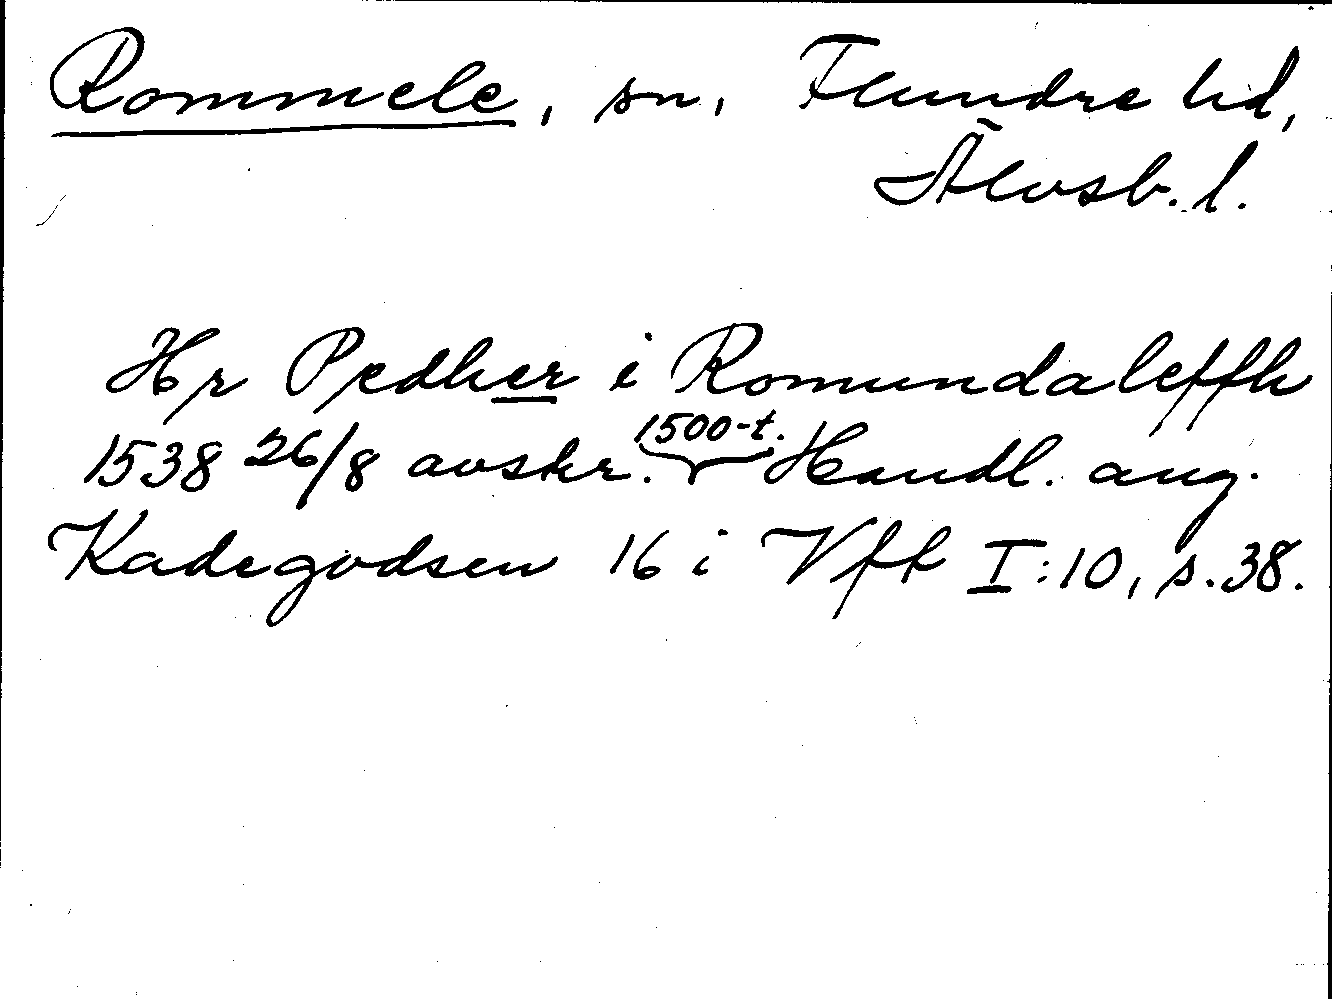 Rommele, sn, Flundre hd,
Älvsb. l.
Hr Pedher i Romundaleffh
1538 26/8 avskr. 1500-t. Handl. ang.
Kadegodsen 16 i Vff I:10, s. 38.